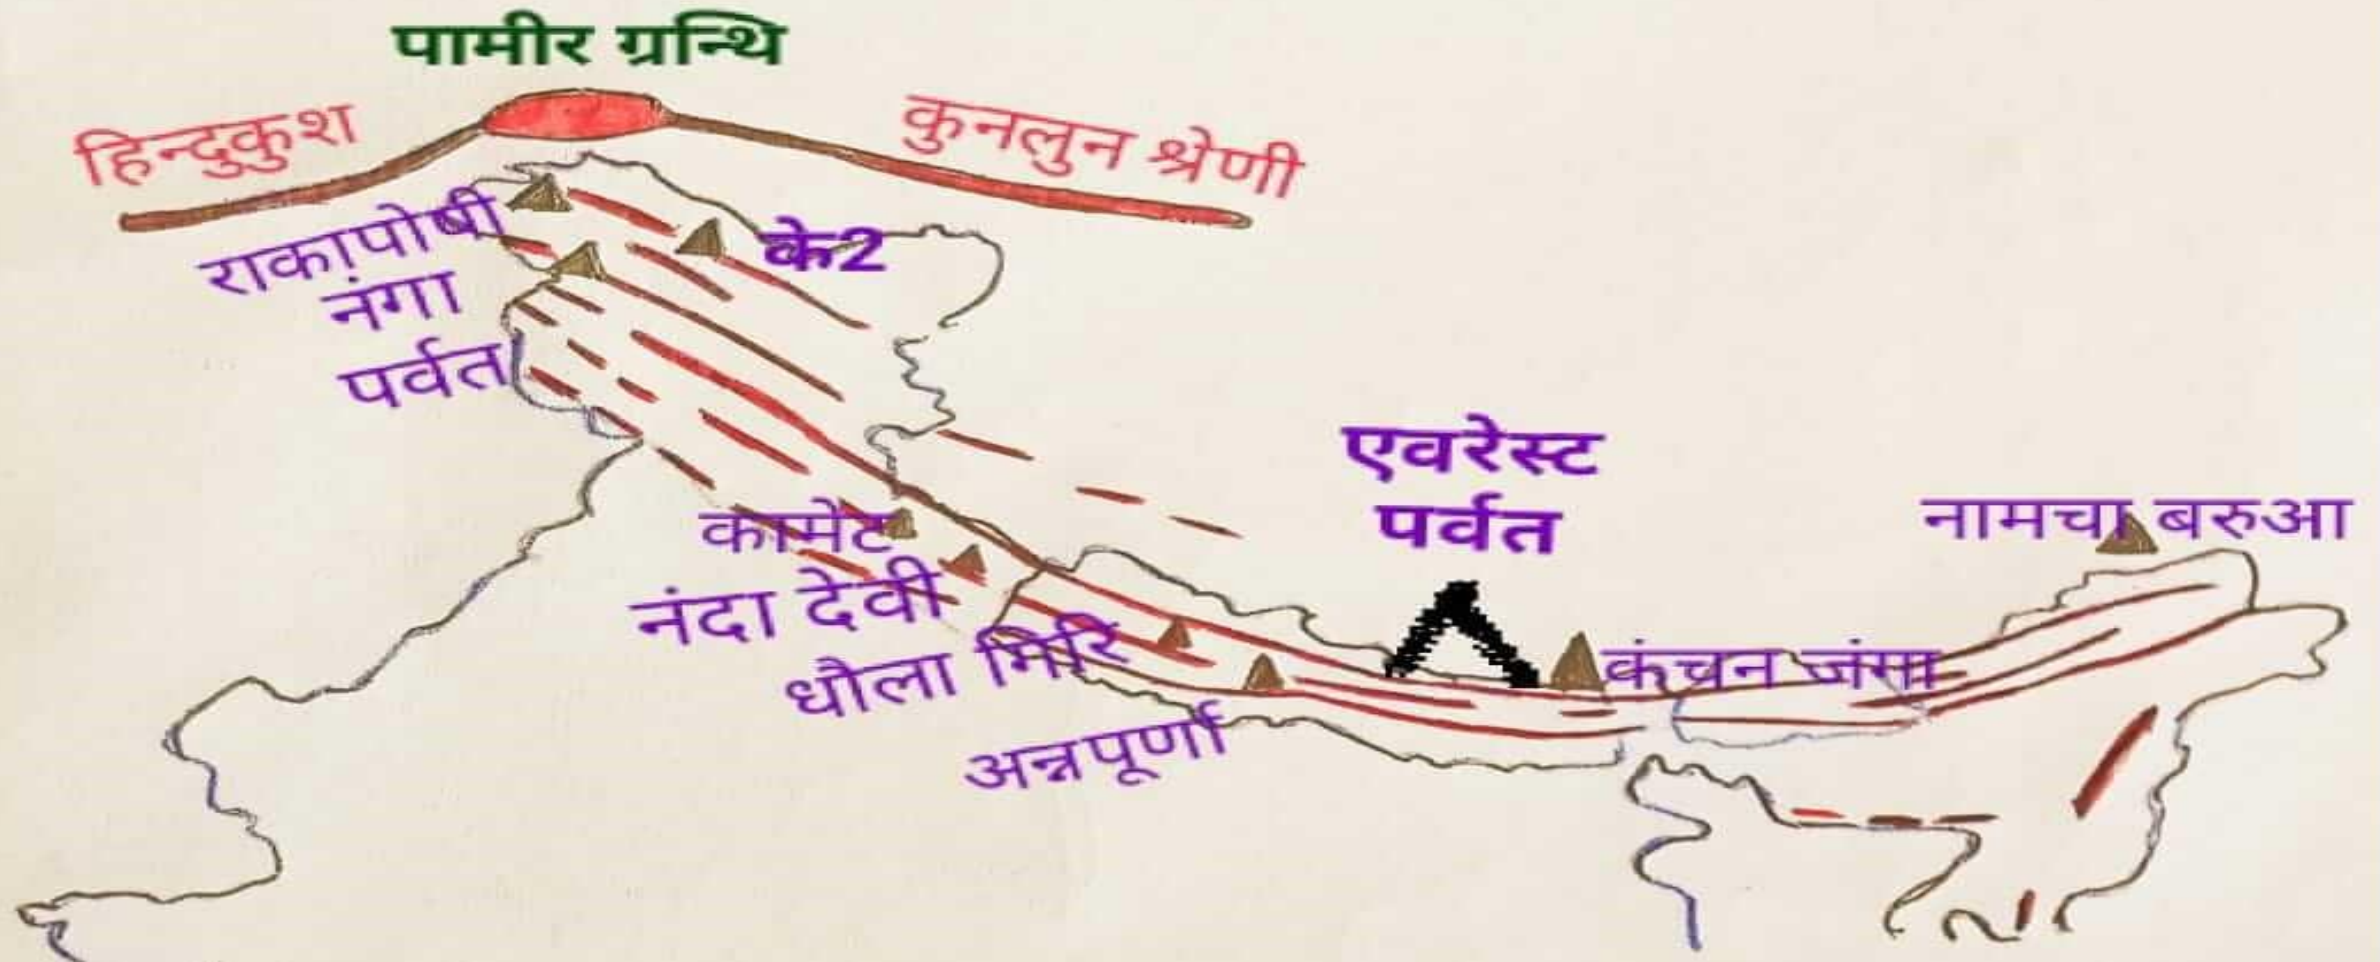 पामीर ग्रन्थि
हिन्दुकुश
कुनलुन श्रेणी
राकापोषी
के2
नंगा
पर्वत
एवरेस्ट
पर्वत
कामेट
नामचा बरुआ
नंदा देवी
धौला गिरि
कंचन जंगा
अन्नपूर्णा